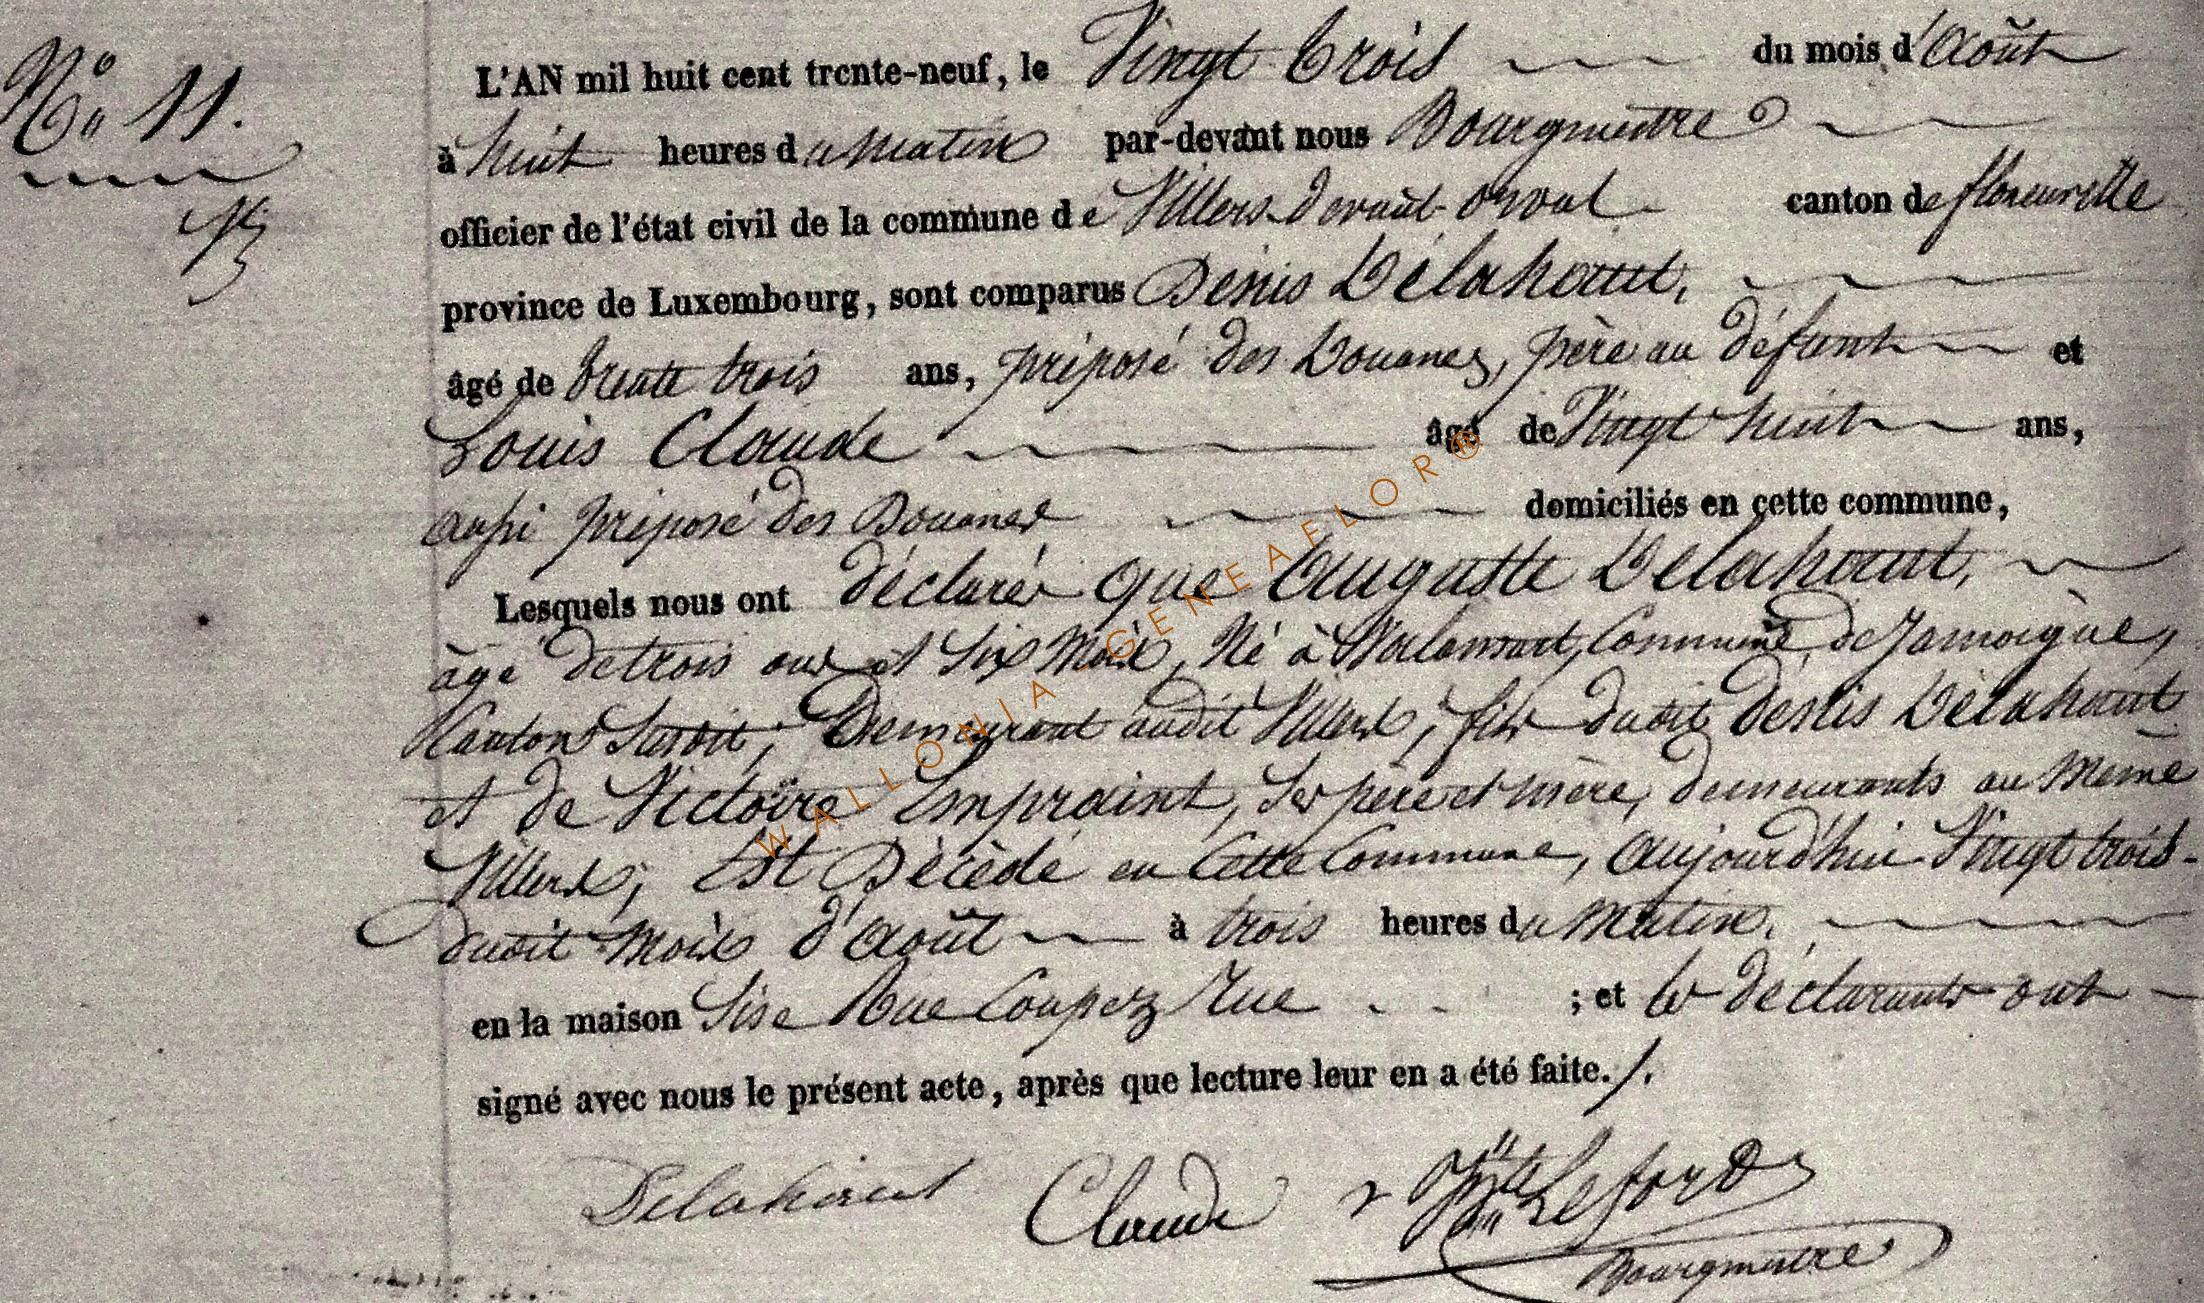 N.° 11.
L'AN mil huit cent trente-neuf, le Vingt trois du mois d'Août
à huit heures du matin par-devant nous Bourgmestre
officier de l'état civil de la commune de Villers devant orval canton de florenville
province de Luxembourg, sont comparus Denis Délahaut,
âgé de trente trois ans, préposé des Douanes, père au défunt et
Louis Claude âgé de Vingt huit ans,
aussi préposé des Douanes domiciliés en cette commune,
Lesquels nous ont déclaré que Auguste Delahaut,
âgé de trois ans et Six Mois, Né à Valansart, Commune de Jamoigne,
Canton Susdit; Demeurant audit Villers; fils dudit Denis Délahaut
et de Victoire Empraint, Ses père et mère, demeurants au Même
Villers; Est Décédé en Cette Commune, Aujourd'hui Vingt trois
dudit Mois d'Août à trois heures du Matin.
en la maison Sise Rue Coupez Rue ; et les déclarants ont
signé avec nous le présent acte, après que lecture leur en a été faite./.
Delahaut Claude Leford
Bourgmestre
WALLONIA GENEAFLOR®